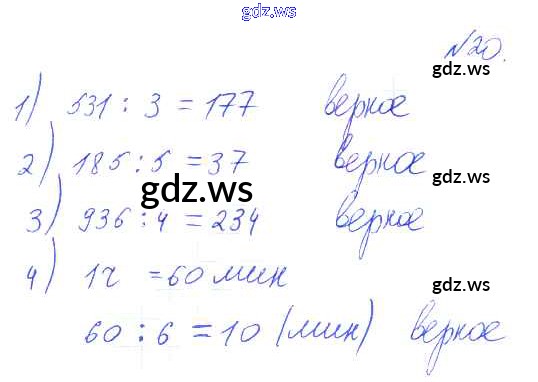 gdz.ws
№20.
gdz.ws
1) 531 : 3 = 177 верное
2) 185 : 5 = 37 верное
gdz.ws
gdz.ws
3) 936 : 4 = 234 верное
4) 1ч = 60 мин
gdz.ws
60 : 6 = 10 (мин) верное
gdz.ws